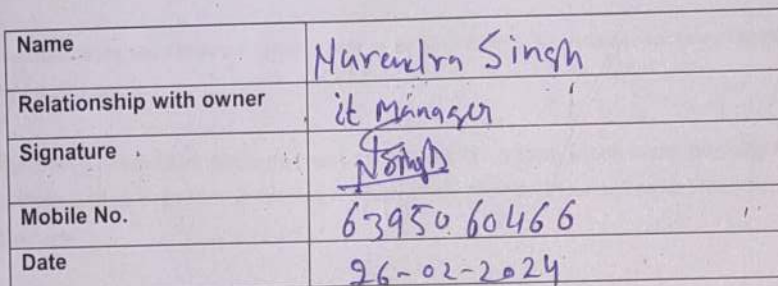 Name Narendra Singh
Relationship with owner it Manager
Signature NSingh
Mobile No. 6395060466
Date 26-02-2024